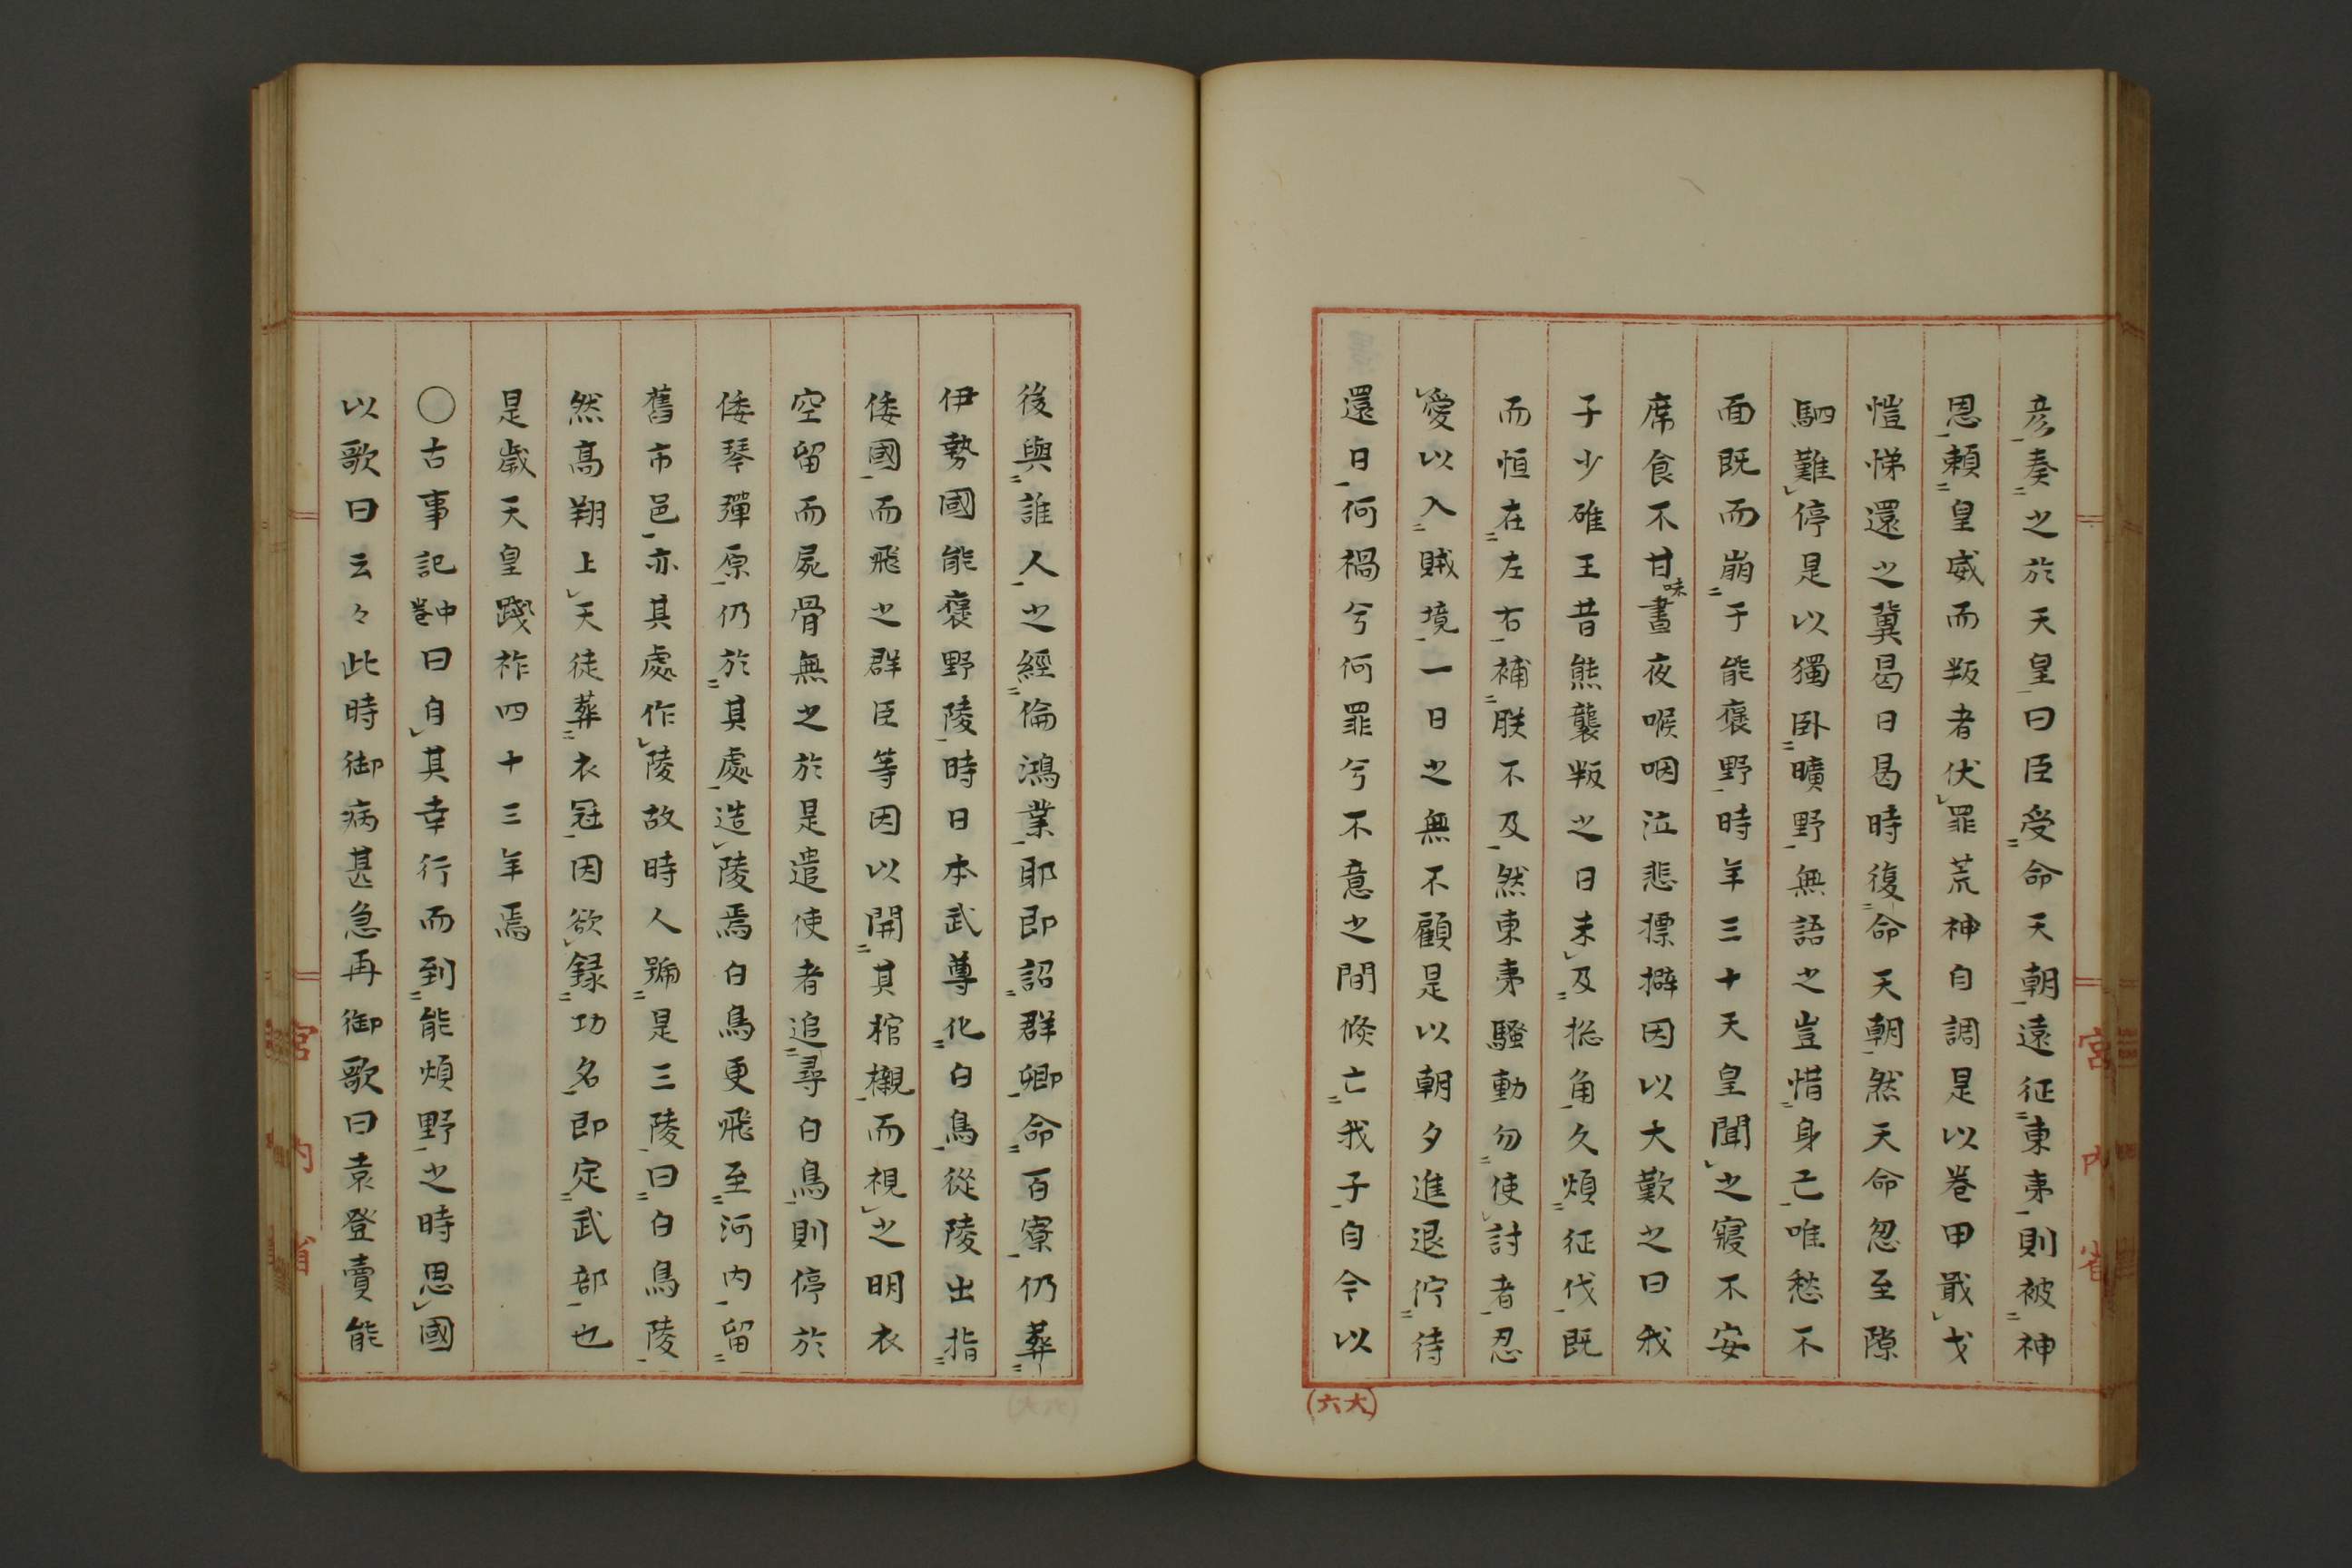 彦奏之於天皇曰臣受命天朝遠征東夷則被神
恩頼皇威而叛者伏罪荒神自調是以巻甲戢戈
愷悌還之冀曷日曷時復命天朝然天命忽至隙
駟難停是以獨臥曠野無語之豈惜身亡唯愁不
面既而崩于能褒野時年三十天皇聞之寢不安
席食不甘味晝夜喉咽泣悲摽擗因以大歎之曰我
子少碓王昔熊襲叛之日未及揔角久煩征伐既
而恒在左右補朕不及然東夷騷動勿使討者忍
愛以入賊境一日之無不顧是以朝夕進退佇待
還日何禍兮何罪兮不意之間倐亡我子自今以
(六大)
後與誰人之經倫鴻業耶即詔群卿命百寮仍葬
伊勢國能褒野陵時日本武尊化白鳥從陵出指
倭國而飛之群臣等因以開其棺櫬而視之明衣
空留而屍骨無之於是遣使者追尋白鳥則停於
倭琴彈原仍於其處造陵焉白鳥更飛至河内留
舊市邑亦其處作陵故時人號是三陵曰白鳥陵
然高翔上天徒葬衣冠因欲錄功名即定武部也
是歲天皇踐祚四十三年焉
〇古事記中巻曰自其幸行而到能煩野之時思國
以歌曰云々此時御病甚急再御歌曰袁登賣能
宮内省
宮内省